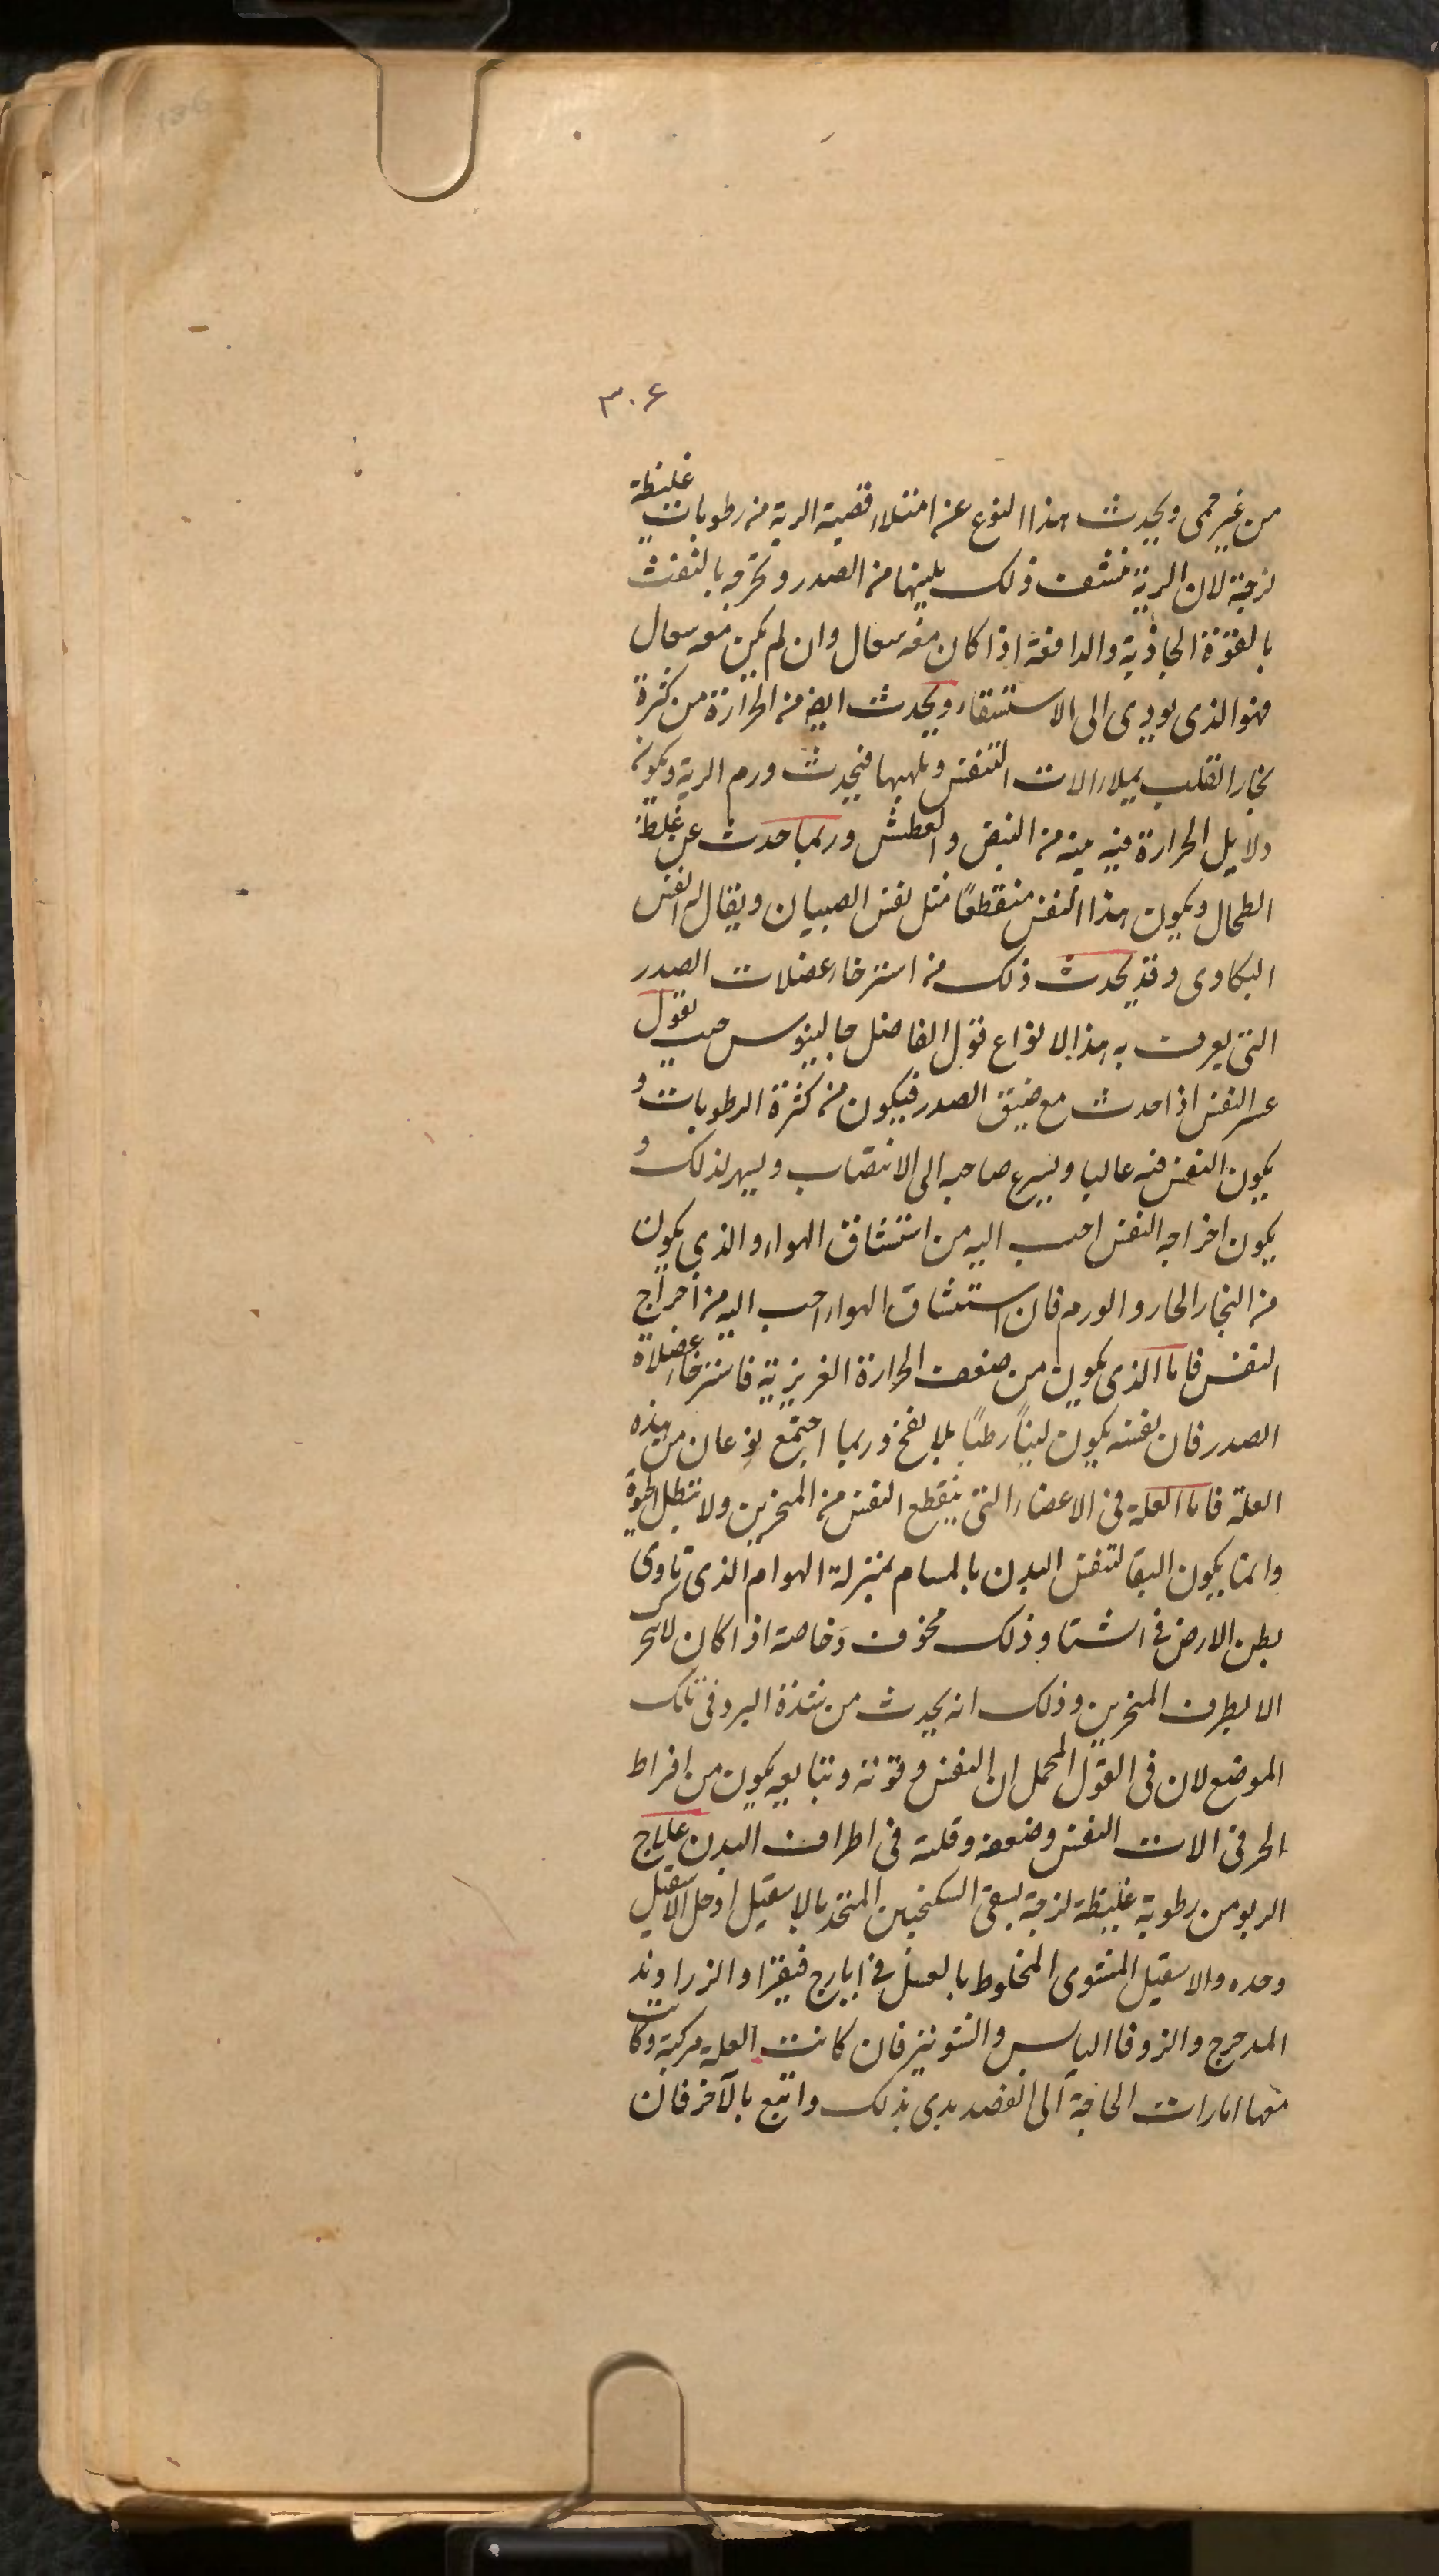 ٣٠۶
من غير حمى ويحدث هذا النوع عن امتلاء قصبة الرية من رطوبات غليظة
لزجة لان الرية تنشف ذلك يلينها من الصدر وتخرجه بالنفث
بالقوة الجاذبة والدافعة اذا كان معه سعال وان لم يكن معه سعال
فهو الذى يودى الى الاستسقاء ويحدث ايضا من الحرارة من كثرة
بخار القلب يملاء الات التنفس ويلهبها فيحدث ورم الرية ويكون
دلايل الحرارة فيه بينه من النبض والعطش وربما حدث عن غلظ
الطحال ويكون هذا النفس منقطعًا مثل نفس الصبيان ويقال له النفس
البكاوى وقد يحدث ذلك من استرخاء عضلات الصدر
التى يعرف به هذا الانواع قول الفاضل جالينوس حيث يقول
عسر النفس اذا حدث مع ضيق الصدر فيكون من كثرة الرطوبات و
يكون النفس فيه عاليا ويسرع صاحبه الى الانتصاب ويسهر لذلك و
يكون اخراجه النفس احب اليه من استنشاق الهواء والذى يكون
من البخار الحار والورم فان استنشاق الهواء احب اليه من اخراج
النفس فاما الذى يكون من ضعف الحرارة الغريزية فاسترخاء عضلاة
الصدر فان نفسه يكون لينًا رطبًا بلا نفخ وربما اجتمع نوعان من هذه
العلة فاما العلة فى الاعضاء التى ينقطع النفس من المنخرين ولا تبطل الحيوة
وانما يكون البقا لتنفس البدن بالمسام بمنزلة الهوام الذى تاوى
بطن الارض فى الشتا وذلك مخوف وخاصة اذا كان لا يتحرك
الا بطرف المنخرين وذلك انه يحدث من شدة البرد فى تلك
الموضع لان فى القول المجمل ان النفس وقوته وتتابعه يكون من افراط
الحر فى الات النفس وضعفه وقلته فى اطراف البدن علاج
الربو من رطوبة غليظة لزجة يسقى السكنجبين المتخذ بالاسقيل او خل الاسقيل
وحده والاسقيل المشوى المخلوط بالعسل فى ايارج فيقرا والزراوند
المدحرج والزوفا اليابس والشونيز فان كانت العلة مركبة وكانت
معها امارات الحاجة الى الفصد بدى بذلك واتبع بالآخر فان